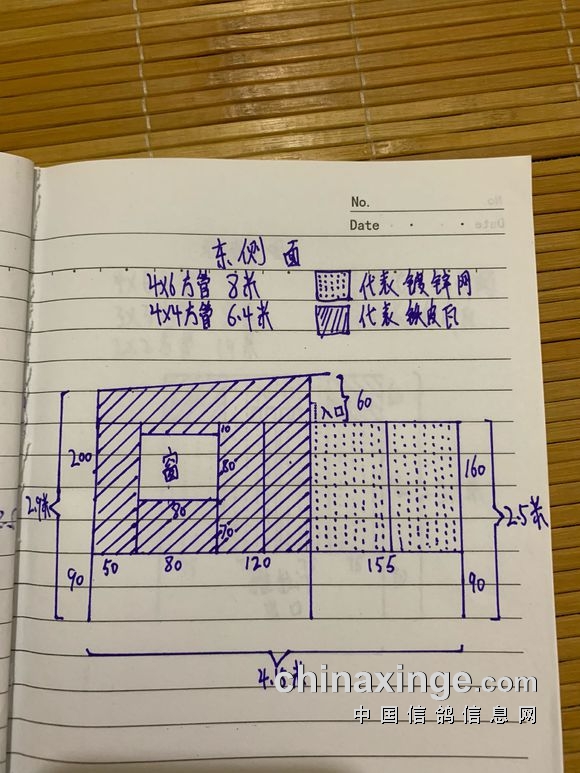 No.
Date
东侧面
4x6方管 8米
代表镀锌网
4x4方管 6.4米
代表铁皮瓦
60
入口
10
200
窗
80
160
2.9米
80
2.5米
70
90
50
80
120
155
90
4.6米
chinaxinge.com
中国信鸽信息网